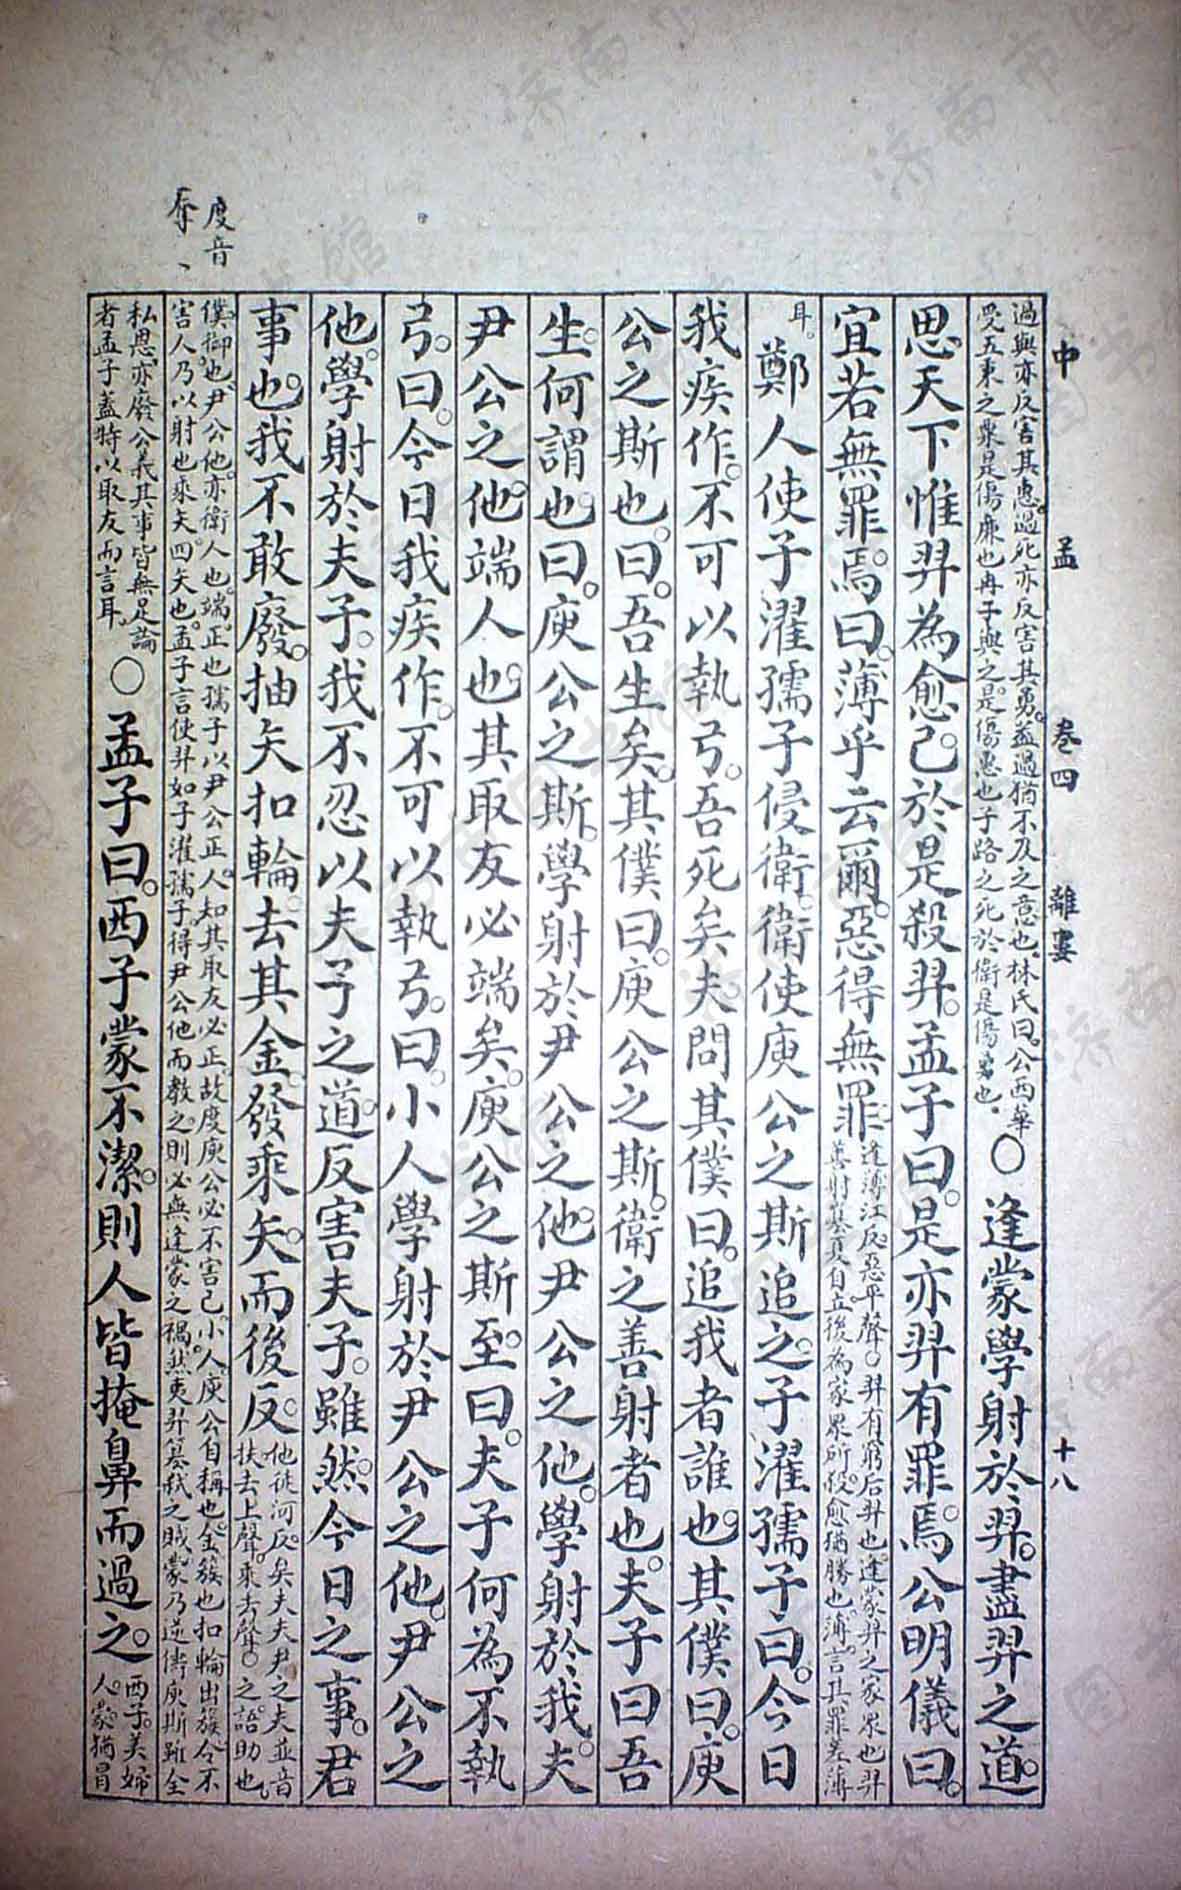 中孟 卷四 離婁 十八
過與亦反害其惠。過死亦反害其勇。蓋過猶不及之意也。林氏曰。公西華
受五秉之粟是傷廉也冉子與之是傷惠也子路之死於衛是傷勇也。
○逢蒙學射於羿。盡羿之道。
思天下惟羿為愈己。於是殺羿。孟子曰。是亦羿有罪焉。公明儀曰。
宜若無罪焉。曰。薄乎云爾。惡得無罪。
逢薄江反。惡平聲。○羿有窮后羿也。逢蒙羿之家眾也羿
善射篡夏自立。後為家眾所殺。愈猶勝也。薄。言其罪差薄
耳。鄭人使子濯孺子侵衛。衛使庾公之斯追之。子濯孺子曰。今日
我疾作。不可以執弓。吾死矣夫。問其僕曰。追我者誰也。其僕曰。庾
公之斯也。曰。吾生矣。其僕曰。庾公之斯。衛之善射者也。夫子曰吾
生。何謂也。曰。庾公之斯。學射於尹公之他。尹公之他。學射於我。夫
尹公之他。端人也。其取友必端矣。庾公之斯。至。曰。夫子何為不執
弓。曰。今日我疾作。不可以執弓。曰。小人學射於尹公之他。尹公之
他。學射於夫子。我不忍以夫子之道。反害夫子。雖然。今日之事。君
事也。我不敢廢。抽矢扣輪。去其金。發乘矢。而後反。
他徒河反。矣夫夫尹之夫並音
扶去上聲。乘去聲。○之語助也。
僕。御也。尹公他。亦衛人也。端。正也。孺子以尹公正人。知其取友必正。故度庾公必不害己。小人。庾公自稱也。金。鏃也。扣輪出鏃。令不
害人。乃以射也。乘矢。四矢也。孟子言使羿如子濯孺子得尹公他而教之。則必無逢蒙之禍。然夷羿篡弒之賊。蒙乃逆儔。庾斯雖全
私恩。亦廢公義。其事皆無足論
者。孟子蓋特以取友而言耳。
○孟子曰。西子蒙不潔。則人皆掩鼻而過之。
西子。美婦
人。蒙。猶冒
度音